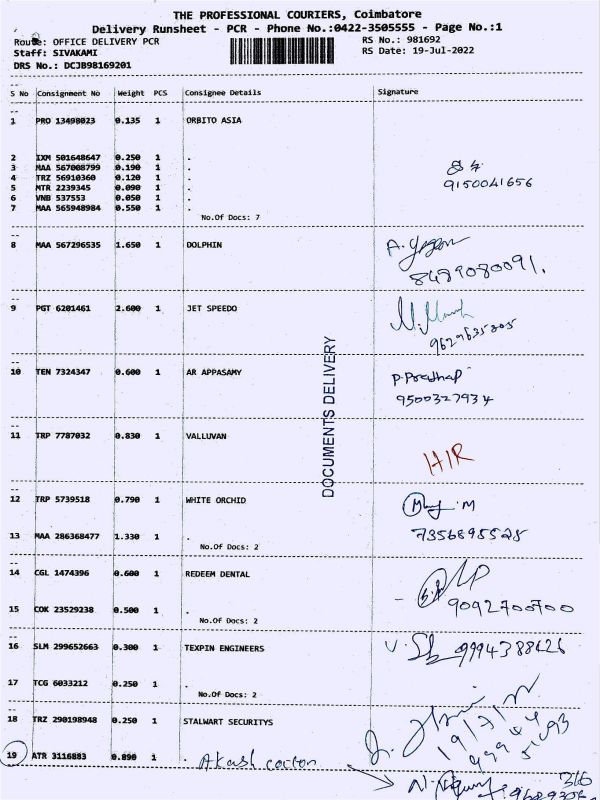 THE PROFESSIONAL COURIERS, Coimbatore
Delivery Runsheet - PCR - Phone No.:0422-3505555 - Page No.:1
Route: OFFICE DELIVERY PCR
RS No.: 981692
Staff: SIVAKAMI
RS Date: 19-Jul-2022
DRS No.: DCJB98169201
S No Consignment No Weight PCS Consignee Details Signature
1 PRO 13498023 0.135 1 ORBITO ASIA
2 IXM 501648647 0.250 1 .
3 MAA 567008799 0.190 1 .
4 TRZ 56910360 0.120 1 .
5 MTR 2239345 0.090 1 .
6 VNB 537553 0.050 1 .
7 MAA 565948984 0.550 1 .
9150041656
No.Of Docs: 7
8 MAA 567296535 1.650 1 DOLPHIN
8489080091.
9 PGT 6201461 2.600 1 JET SPEEDO
DOCUMENTS DELIVERY
10 TEN 7324347 0.600 1 AR APPASAMY
P.Pradhap
9500327934
11 TRP 7787032 0.830 1 VALLUVAN
HIR
12 TRP 5739518 0.790 1 WHITE ORCHID
13 MAA 286368477 1.330 1 .
7356895528
No.Of Docs: 2
14 CGL 1474396 0.600 1 REDEEM DENTAL
15 COK 23529238 0.500 1 .
9092700700
No.Of Docs: 2
16 SLM 299652663 0.300 1 TEXPIN ENGINEERS
17 TCG 6033212 0.250 1 .
No.Of Docs: 2
18 TRZ 290198948 0.250 1 STALWART SECURITYS
19 ATR 3116883 0.890 1 . Akash
316